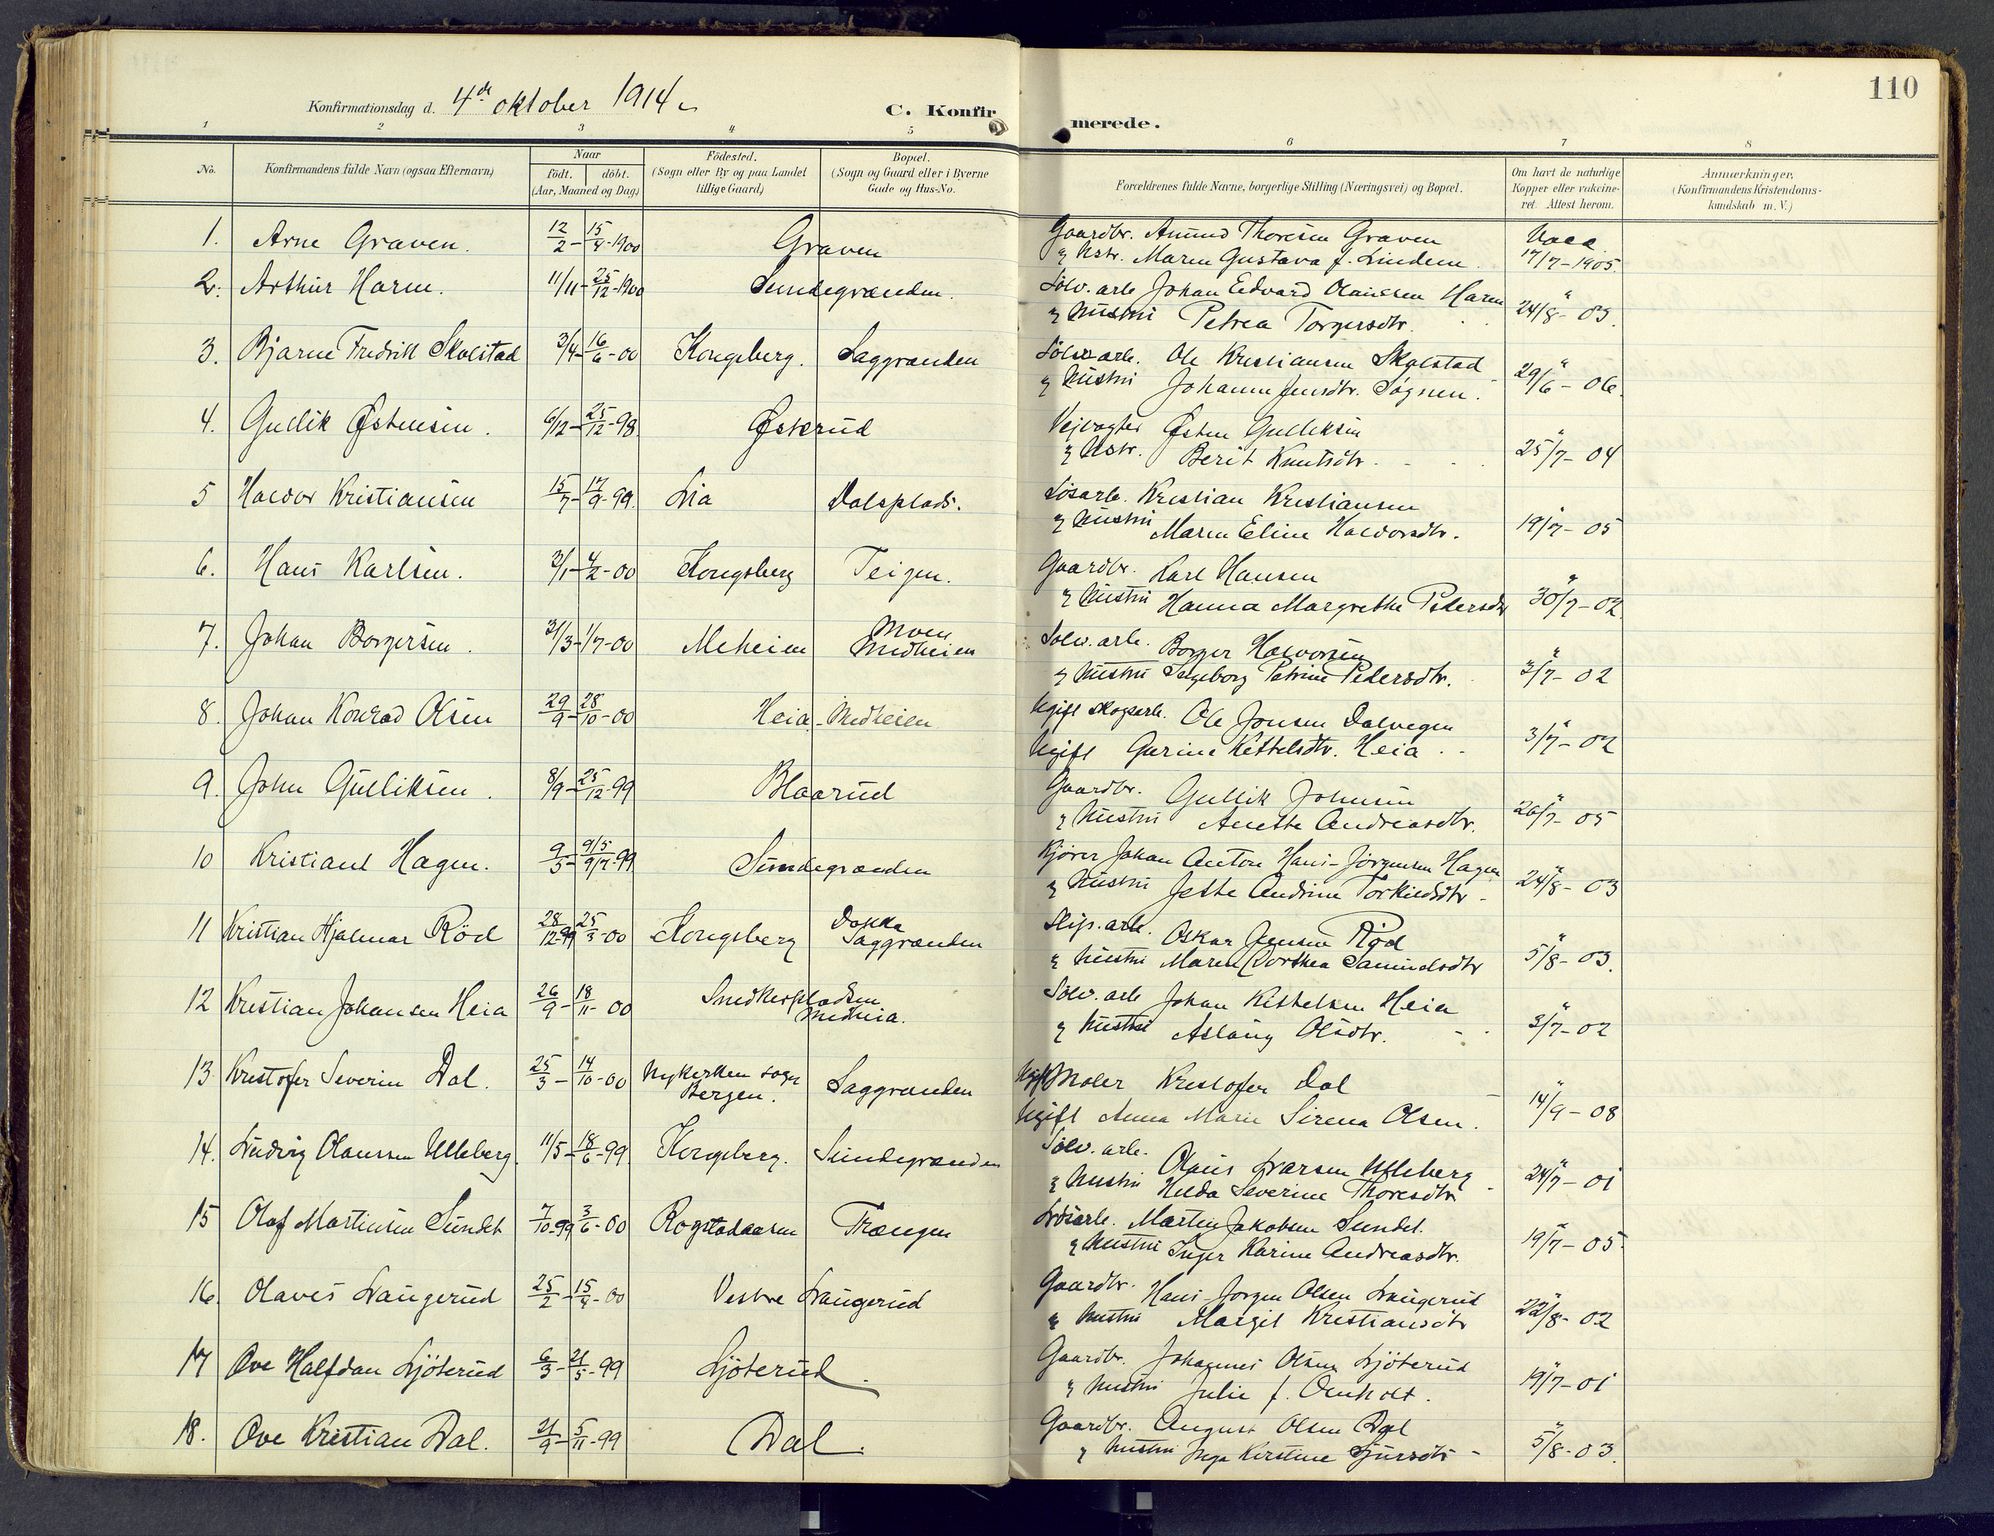 110
Konfirmationsdag d. 4de oktober 1914
C. Konfirmerede.
1 2 3 4 5 6 7 8
No.
Konfirmandens fulde Navn (ogsaa Efternavn)
Naar
født. døbt.
(Aar, Maaned og Dag)
Fødested.
(Sogn eller By og paa Landet
tillige Gaard)
Bopæl.
(Sogn og Gaard eller i Byerne
Gade og Hus-No.
Forældrenes fulde Navne, borgerlige Stilling (Næringsvei) og Bopæl.
Om havt de naturlige
Kopper eller vakcine-
ret. Attest herom.
Anmærkninger.
(Konfirmandens Kristendoms-
kundskab m. V.)
1. Arne Graven. 12/2 - 15/4-1900 Graven Gaardbr. Amund Thoresen Graven Vacc.
& Hstr. Maren Gustava f. Lindem. 17/7-1905.
2. Arthur Harm. 11/11 - 25/12-1900 Sundegrænden. Sølv. arb. Johan Edvard Olaussen Harm "
& Hustru Petrea Torgersdtr. 24/8-03.
3. Bjarne Fredrik Skolstad 3/4 - 16/6-00 Kongsberg. Saggrænden Sølv arb. Ole Kristiansen Skolstad "
& Hustru Johanne Jensdtr. Søgnen. 29/6-06.
4. Gullik Østensen. 6/12 - 25/12-98. Østerud Veivogter Østen Gulliksen "
& Hstr. Berit Knutsdtr. 25/7-04
5 Halvor Kristiansen 15/7 - 17/9-99. Lia Dalsplads. Løsarb. Kristian Kristiansen "
& Hustru Maren Eline Halvorsdtr. 19/7-05
6. Hans Karlsen. 3/1 - 4/2-00 Kongsberg Teigen. Gaardbr. Karl Hansen "
& Hustru Hanna Margrethe Pedersdtr 30/7-02
7. Johan Borgersen. 31/3 - 1/7-00 Meheien Moen Medheien Sølv. arb. Borger Halvorsen "
& Hustru Ingeborg Petrine Pedersdtr. 3/7-02
8. Johan Konrad Olsen 29/9 - 28/10-00 Heia, Medheien Ugift skogsarb. Ole Jonsen Dalvegen "
Ugift Gurine Kittelsdtr. Heia 3/7-02
9. John Gulliksen. 8/9 - 25/12-99 Blaarud Gaardbr. Gullik Johnsen "
& Hustru Anette Andreasdtr. 26/7-05
10 Kristiane Hagen. 9/3 - 9/5 9/7-99 Sundegrænden Kjører Johan Anton Hans-Jørgensen Hagen "
& Hustru Jette Andrine Torkildsdtr 24/8-03
11 Kristian Hjalmar Röd 28/12-99 25/3-00 Kongsberg Dokka Saggrænden Slip. arb. Oskar Jensen Röd "
& Hustru Maren Dorthea Samuelsdtr 5/8-03.
12 Kristian Johansen Heia 26/9 - 18/11-00 Snedkerpladsen Medheia. Sølv. arb Johan Kittelsen Heia "
& Hustru Aslaug Olsdtr. 3/7-02
13 Kristofer Severin Dal. 25/3 - 14/10-00 Nykirken sogn Bergen. Saggrænden Ugift Maler Kristofer Dal "
Ugift Anna Marie Sirena Olsen. 14/9-08
14. Ludvig Olaussen Ulleberg. 11/5 - 18/6-99 Kongsberg. Sundegrænden Sølv. arb. Olaus Larsen Ulleberg "
& Hustru Hilda Severine Thoresdtr 24/7-01
15 Olaf Martinsen Sundet 7/10-99 3/6-00 Rogstadaasen Trængen Løsarb. Martin Jakobsen Sundet. "
& Hustru Inger Karine Andreasdtr. 19/7-05
16. Olaves Langerud 25/2 - 15/4-00 Vestre Langerud Gaardbr. Hans-Jørgen Olsen Langerud "
& Hustru Margit Kristiansdtr 22/8-02
17 Ove Halfdan Ljøterud 6/3 - 21/5-99 Ljøterud. Gaardbr. Johannes Olsen Ljøterud "
& Hustru Julie f. Omholt. 19/7-01
18. Ove Kristian Dal. 21/9 - 5/11-99 Dal. Gaardbr. August Olsen Dal "
& Hustru Inga Kirstine Sjursdtr 5/8-03.